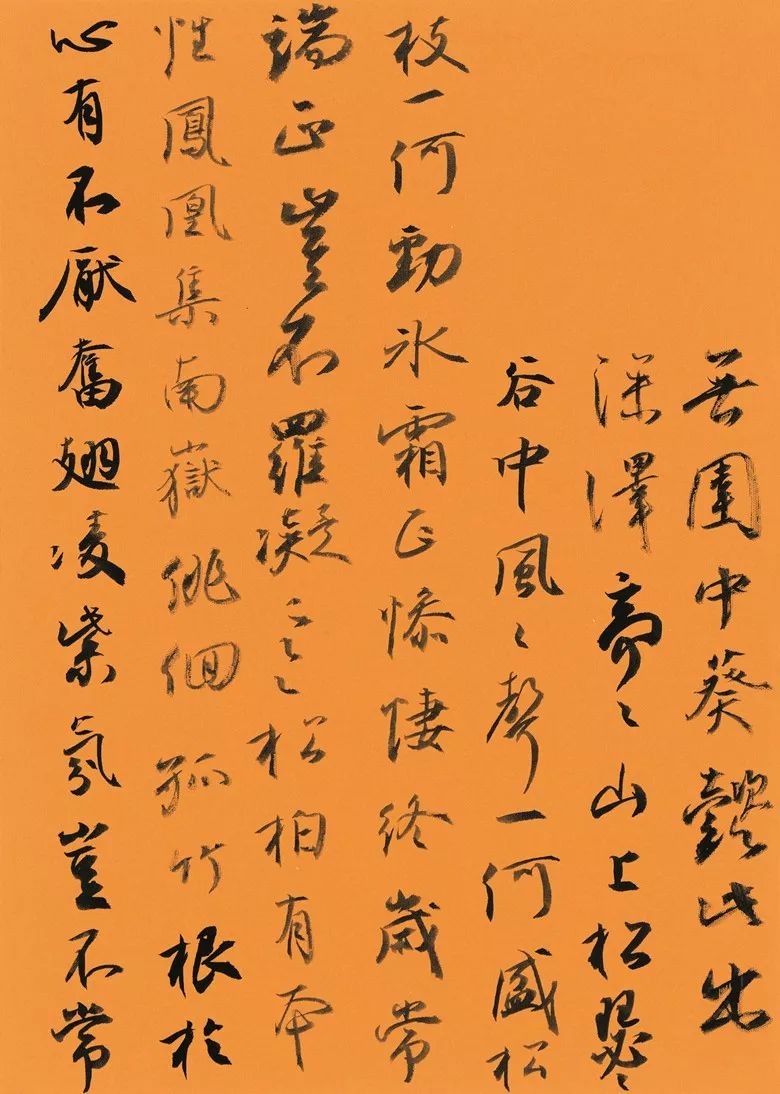 無園中葵懿此出
深澤亭々山上松瑟々
谷中風々聲一何盛松
枝一何勁冰霜正慘悽終歲常
端正豈不羅凝寒松柏有本
性鳳凰集南嶽徘徊孤竹根於
心有不厭奮翅凌紫氛豈不常